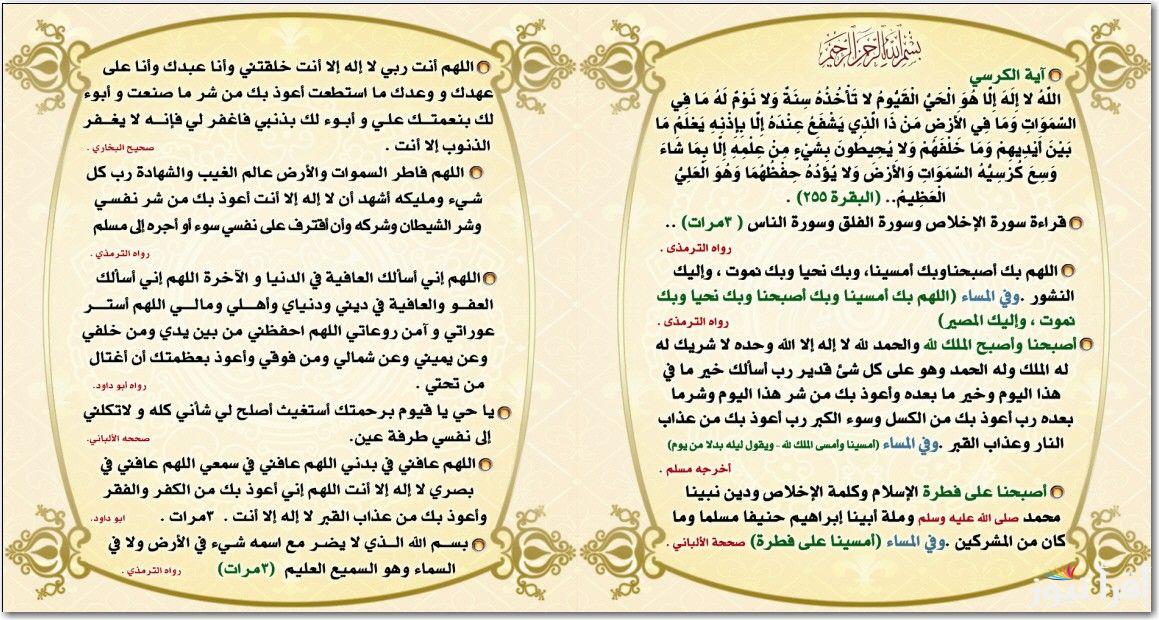 بسم الله الرحمن الرحيم
آية الكرسي
اللَّهُ لا إِلَهَ إِلَّا هُوَ الْحَيُّ الْقَيُّومُ لا تَأْخُذُهُ سِنَةٌ وَلا نَوْمٌ لَهُ مَا فِي
السَّمَوَاتِ وَمَا فِي الأَرْضِ مَنْ ذَا الَّذِي يَشْفَعُ عِنْدَهُ إِلَّا بِإِذْنِهِ يَعْلَمُ مَا
بَيْنَ أَيْدِيهِمْ وَمَا خَلْفَهُمْ وَلا يُحِيطُونَ بِشَيْءٍ مِنْ عِلْمِهِ إِلَّا بِمَا شَاءَ
وَسِعَ كُرْسِيُّهُ السَّمَوَاتِ وَالأَرْضَ وَلا يَؤُدُهُ حِفْظُهُمَا وَهُوَ الْعَلِيُّ
الْعَظِيمُ.. (البقرة ٢٥٥) .
قراءة سورة الإخلاص وسورة الفلق وسورة الناس ( ٣مرات) ..
رواه الترمذى .
اللهم بك أصبحناوبك أمسينا، وبك نحيا وبك نموت ، وإليك
النشور .وفي المساء (اللهم بك أمسينا وبك أصبحنا وبك نحيا وبك
نموت ، وإليك المصير) رواه الترمذى .
أصبحنا وأصبح الملك لله والحمد لله لا إله إلا الله وحده لا شريك له
له الملك وله الحمد وهو على كل شئ قدير رب أسألك خير ما في
هذا اليوم وخير ما بعده وأعوذ بك من شر هذا اليوم وشرما
بعده رب أعوذ بك من الكسل وسوء الكبر رب أعوذ بك من عذاب
النار وعذاب القبر .وفي المساء (أمسينا وأمسى الملك لله - ويقول ليله بدلا من يوم)
أخرجه مسلم .
أصبحنا على فطرة الإسلام وكلمة الإخلاص ودين نبينا
محمد صلى الله عليه وسلم وملة أبينا إبراهيم حنيفا مسلما وما
كان من المشركين .وفي المساء (أمسينا على فطرة) صححة الألباني .
اللهم أنت ربي لا إله إلا أنت خلقتني وأنا عبدك وأنا على
عهدك و وعدك ما استطعت أعوذ بك من شر ما صنعت و أبوء
لك بنعمتك علي و أبوء لك بذنبي فاغفر لي فإنه لا يغفر
الذنوب إلا أنت . صحيح البخاري .
اللهم فاطر السموات والأرض عالم الغيب والشهادة رب كل
شيء ومليكه أشهد أن لا إله إلا أنت أعوذ بك من شر نفسي
وشر الشيطان وشركه وأن أقترف على نفسي سوء أو أجره إلى مسلم
رواه الترمذي .
اللهم إني أسألك العافية في الدنيا و الآخرة اللهم إني أسألك
العفو والعافية في ديني ودنياي وأهلي ومالي اللهم أستر
عوراتي و آمن روعاتي اللهم احفظني من بين يدي ومن خلفي
وعن يميني وعن شمالي ومن فوقي وأعوذ بعظمتك أن أغتال
من تحتي . رواه أبو داود.
يا حي يا قيوم برحمتك أستغيث أصلح لي شأني كله و لاتكلني
إلى نفسي طرفة عين. صححه الألباني.
اللهم عافني في بدني اللهم عافني في سمعي اللهم عافني في
بصري لا إله إلا أنت اللهم إني أعوذ بك من الكفر والفقر
وأعوذ بك من عذاب القبر لا إله إلا أنت . ٣مرات . ابو داود.
بسم الله الذي لا يضر مع اسمه شيء في الأرض ولا في
السماء وهو السميع العليم (٣مرات) رواه الترمذي .
اقرأ نيوز